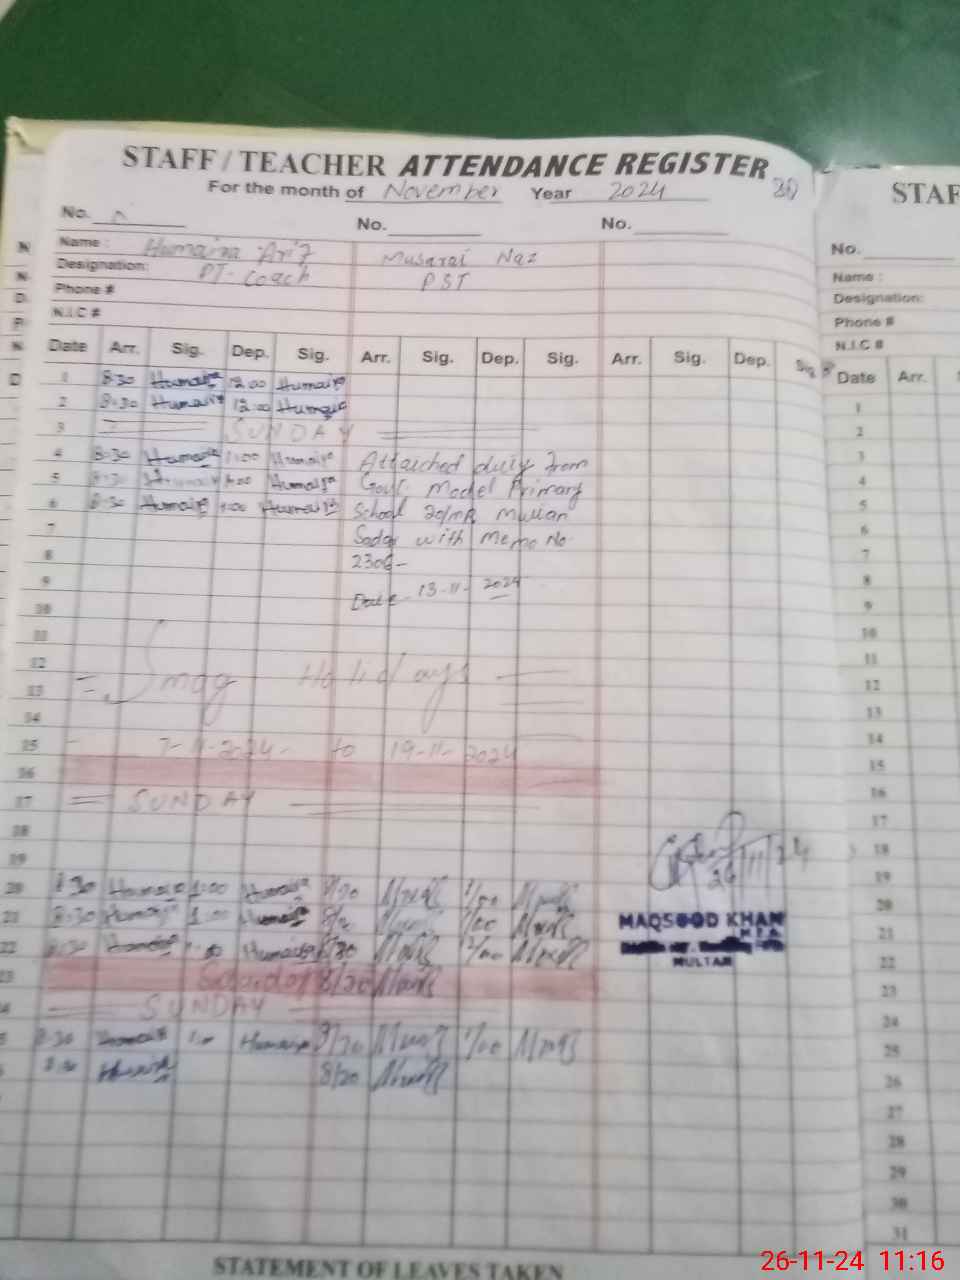 STAFF / TEACHER ATTENDANCE REGISTER
For the month of November Year 2024
No. No. No.
Name : Humaira Arif Musarat Naz
Designation: PT-Coach PST
Phone #
N.I.C #
Date Arr. Sig. Dep. Sig. Arr. Sig. Dep. Sig. Arr. Sig. Dep. Sig.
1 8:30 Humaira 12:00 Humaira
2 8:30 Humaira 12:00 Humaira
3 SUNDAY
4 8:30 Humaira 1:00 Humaira Attached duty from
5 8:30 Humaira 1:00 Humaira Govt. Model Primary
6 8:30 Humaira 1:00 Humaira School 20/MR Multan
7 Sadar with Memo No
8 2306-
9 Date 13-11-2024
10
11
12
13 Smog Holidays
14
15 7-11-2024 - to 19-11-2024
16
17 SUNDAY
18
19
20 8:30 Humaira 1:00 Humaira 8/30
21 8:30 Humaira 1:00 Humaira 1/00
22 8:30 Humaira Humaira 8/30
23 Saturday 8/30
SUNDAY
8:30 Humaira 1:00 Humaira 1/00
8:30 Humaira 8/30
26/11/24
MAQSOOD KHAN
MULTAN
STATEMENT OF LEAVES TAKEN
STAF
No.
Name :
Designation:
Phone #
N.I.C #
Date Arr.
1
2
3
4
5
6
7
8
9
10
11
12
13
14
15
16
17
18
19
20
21
22
23
24
25
26
27
28
29
30
31
26-11-24 11:16